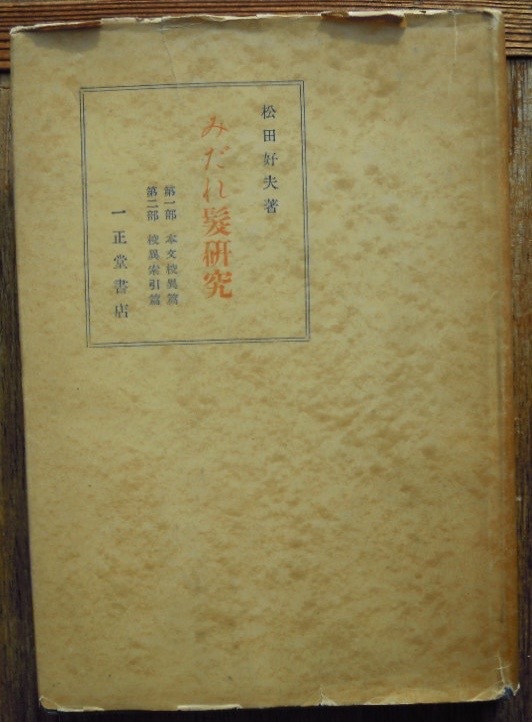 松田好夫著
みだれ髪研究
第一部 本文校異篇
第二部 校異索引篇
一正堂書店